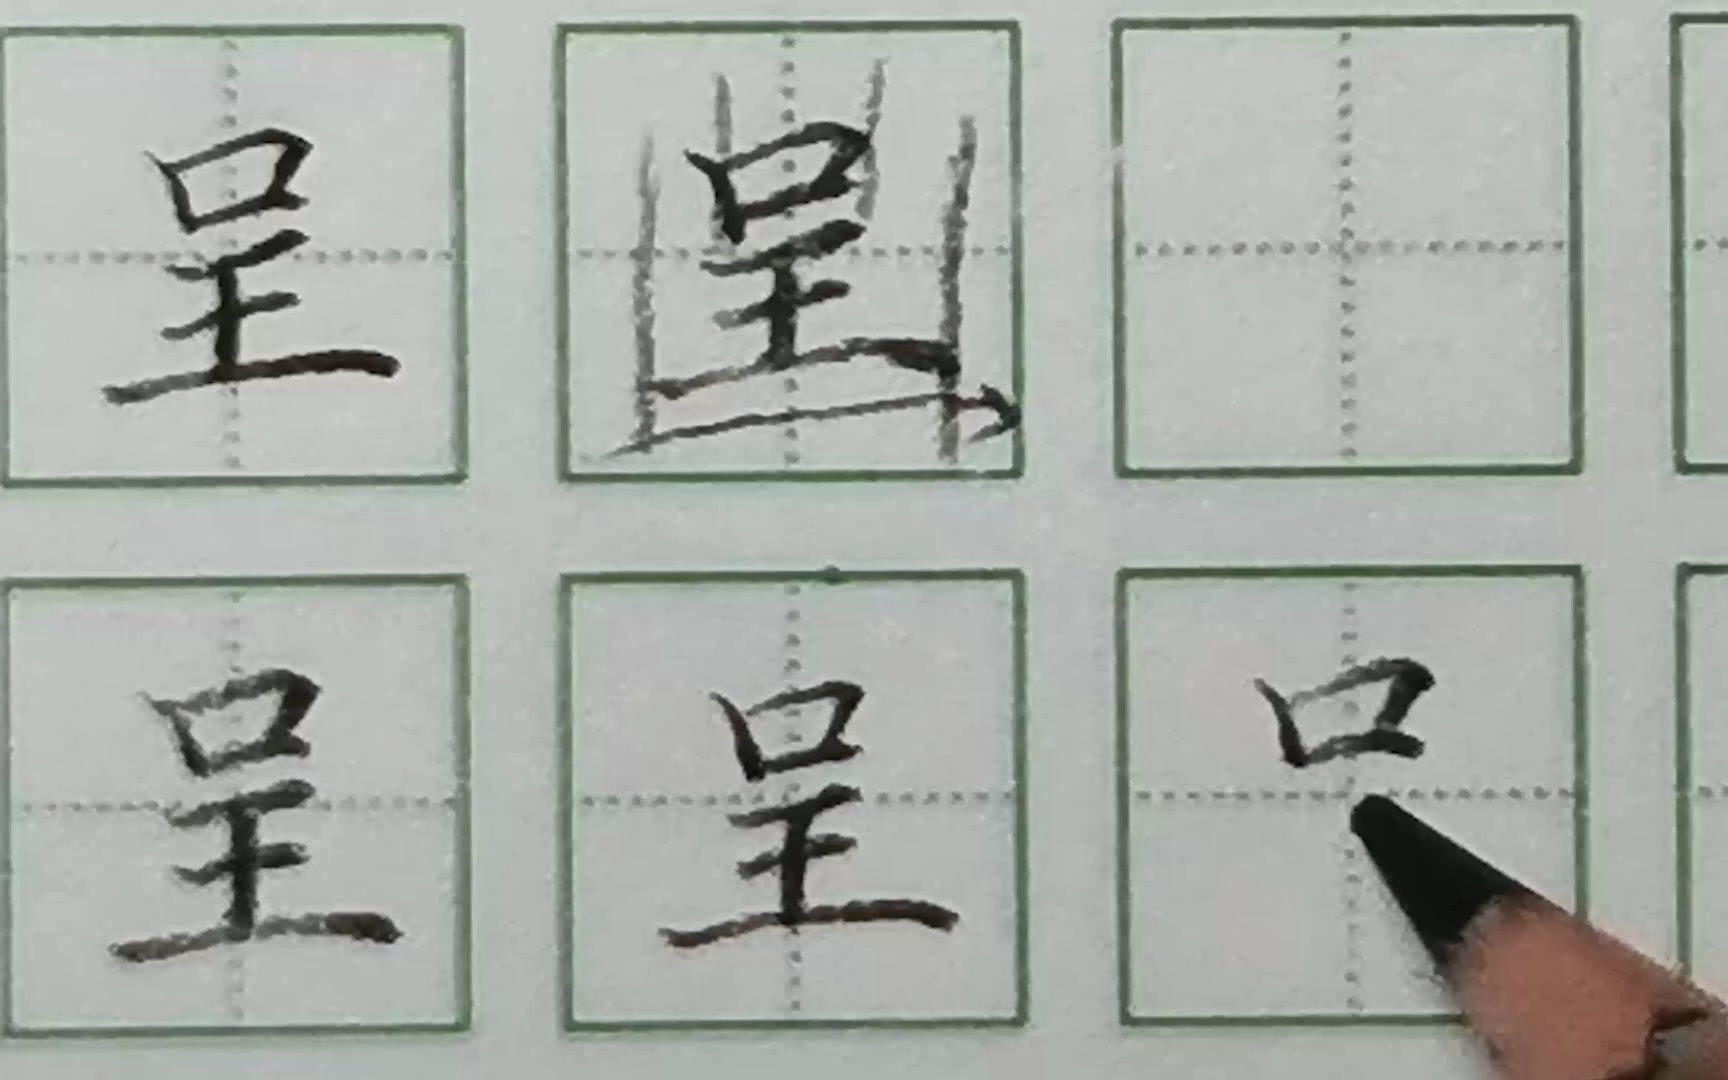 呈 呈
呈 呈 口